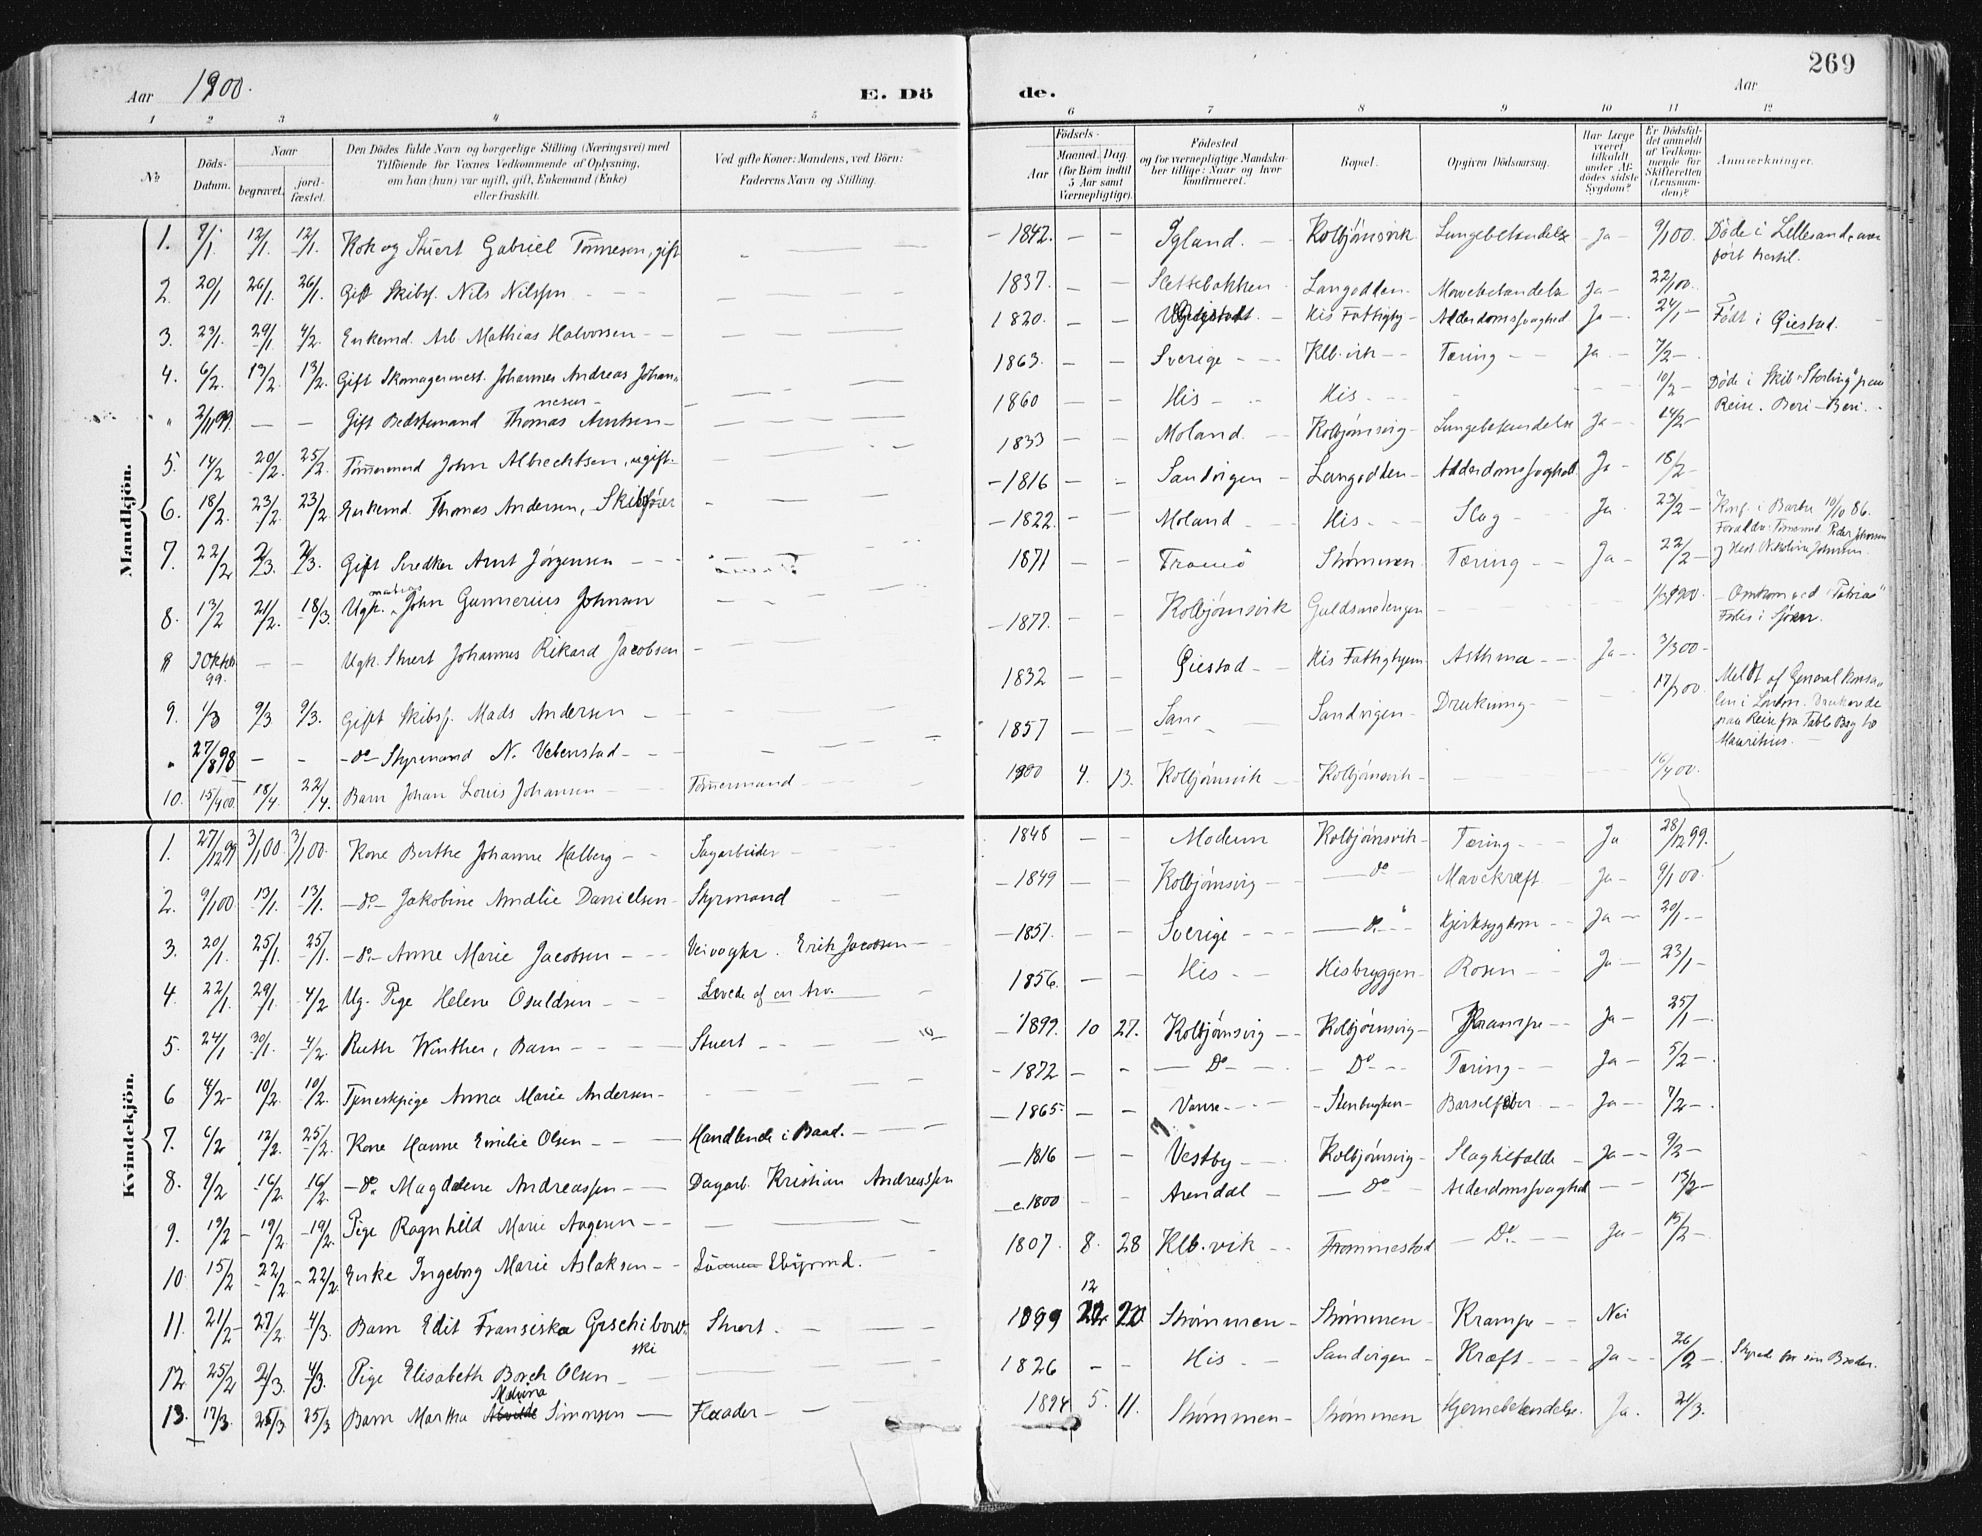 269
Aar 1900.
E. Dö de.
Aar
1 2 3 4 5 6 7 8 9 10 11 12
No
Döds-Datum.
Naar
begravet.
jord-fæstet.
Den Dödes fulde Navn og borgerlige Stilling (Næringsvei) med
Tilföiende for Voxnes Vedkommende af Oplysning,
om han (hun) var ugift, gift, Enkemand (Enke)
eller fraskilt.
Ved gifte Koner: Mandens, ved Börn:
Faderens Navn og Stilling.
Födsels-
Aar
Maaned. Dag
(for Börn indtil
5 Aar samt
Værnepligtige).
Födested
og for værnepligtige Mandska-
ber tillige: Naar og hvor
konfirmeret.
Bopæl.
Opgiven Dödsaarsag.
Har Læge
været
tilkaldt
under Af-
dödes sidste
Sygdom?
Er Dödsfal-
det anmeldt
af Vedkom-
mende for
Skifteretten
(Lensman-
den)?
Anmærkninger.
Mandkjön.
1. 8/1. 12/1. 12/1. Kok og Stuert Gabriel Tønnesen, gift - 1842. - - Igland. Kolbjönsvik Lungebetændelse Ja 9/1 00. Döde i Lillesand, over
fört hertil.
2. 20/1 26/1. 26/1. Gift Skibsf. Nils Nilssen 1837. - - Slettebakken Langodden Mavebetændelse Ja 22/1 00.
3. 23/1. 29/1. 4/2. Enkemd. Arb. Mathias Halvorsen 1820. - - His Fattigby Alderdomssvaghed Ja 24/1 Födt i Øiestad.
4. 6/2. 13/2. 13/2. Gift Skomagermest. Johannes Andreas Johan-
nesen 1863. - - Sverige Klb.vik Tæring Ja 7/2
" 2/11 99. - - Gift Bedstemand Thomas Arntsen 1860 - - His His 10/2 Döde i Skib "Sterling" paa
Reise. Beri-Beri.
5. 14/2 20/2. 25/2. Tömmermd John Albrechtsen, ugift 1833 - - Moland Kolbjörnsvig Lungebetændelse Ja 14/2
6. 18/2. 23/2. 23/2. Enkemd. Thomas Andersen, Skibsfører 1816 - - Sandvigen Langodden Alderdomssvaghed Ja 18/2
7. 22/2 2/3. 2/3. Gift Snedker Arnt Jörgensen 1822. - - Moland His Slag Ja 23/2
8. 13/2 21/2. 18/3. Ugk. matros John Gunnerius Johnsen 1871 Tromö Strömmen Tæring Ja 22/2
Konf. i Barbu 10/10 86.
Forældre: Tömmermd Peder Johnsen
og Hest. Nikoline Johnsen.
" 3 Oktbr 99. - - Ugk. Stuert Johannes Rikard Jacobsen 1877. Kolbjörnsvik Guldsmedengen Omkom med "Patria"
Fodes i Sjøen.
9. 1/3 9/3 9/3. Gift Skibsf. Mads Andersen 1832 - - Øiestad His Fattighjem Asthma Ja 3/3 00
" 27/8 98 - - do Styrmand N. Vebenstad 1857 - - Sandvigen Drukning 17/3 00. Meldt af Generalkonsu-
len i London. Druknede
paa Reise fra Table Bay to
Mauritius.
10. 15/4 00. 18/4. 22/4. Barn Johan Louis Johansen Tömmermand 1900 4. 13. Kolbjörnsvik Kolbjörnsvik 16/4 00.
Kvindekjön.
1. 27/12 99 3/1 00. 3/1 00. Kone Berthe Johanne Halberg Sagarbeider 1848 - - Modum Kolbjörnsvik Tæring Ja 28/12 99.
2. 9/1 00 13/1. 13/1. do Jakobine Amalie Danielsen Styrmand 1849 - - Kolbjörnsvig do Mavekræft Ja 9/1 00.
3. 20/1. 25/1. 25/1. do Anne Marie Jacobsen Veivogter. Erik Jacobsen 1851. - - Sverige do Hjertesygdom Ja 20/1
4. 22/1. 29/1. 4/2 Ug. Pige Helene Osuldsen Levede af en Arv. 1856. - - His Hisbryggen Rosen Ja 23/1
5. 24/1 30/1. 4/2. Ruth Winther, Barn Stuert 1899. 10 27. Kolbjörnsvig Kolbjörnsvig Krampe Ja 25/1
6 4/2 10/2. 10/2. Tjenestepige Anna Marie Andersen 1872 - - Do Do Tæring Ja 5/2
7. 6/2 12/2. 25/2. Kone Hanne Emilie Olsen Handlende i Baad. 1865 - - Vanse Stenbugten Barselfeber Ja 7/2
8. 9/2 16/2. 16/2. do Magdalene Andreassen Dagarb. Kristian Andreassen 1816 - - Vestby Kolbjörnsvig Slagtilfælde Ja 9/2
9. 13/2 19/2. 19/2. Pige Ragnhild Marie Aagesen c. 1800 - - Arendal do Alderdomssvaghed 13/2
10. 15/2 22/2 22/2. Enke Ingeborg Marie Aslaksen 1807. 8. 28 Klb.vik Frommestad Do Ja 15/2
11. 21/2 27/2 4/3. Barn Edit Fransiska Grschibow-
ski Stuert. 1899 12 20 Strømmen Strømmen Krampe Nei
12 25/2 2/3. 4/3. Pige Elisabeth Borch Olsen 1826 - - His Sandvigen Kræft Ja 26/2 Styrede for sin Broder.
13. 17/3. 25/3 25/3 Barn Martha Malvina Simonsen Fløder 1894 5. 11. Strömmen Strömmen Hjernebetændelse. Ja. 21/3.